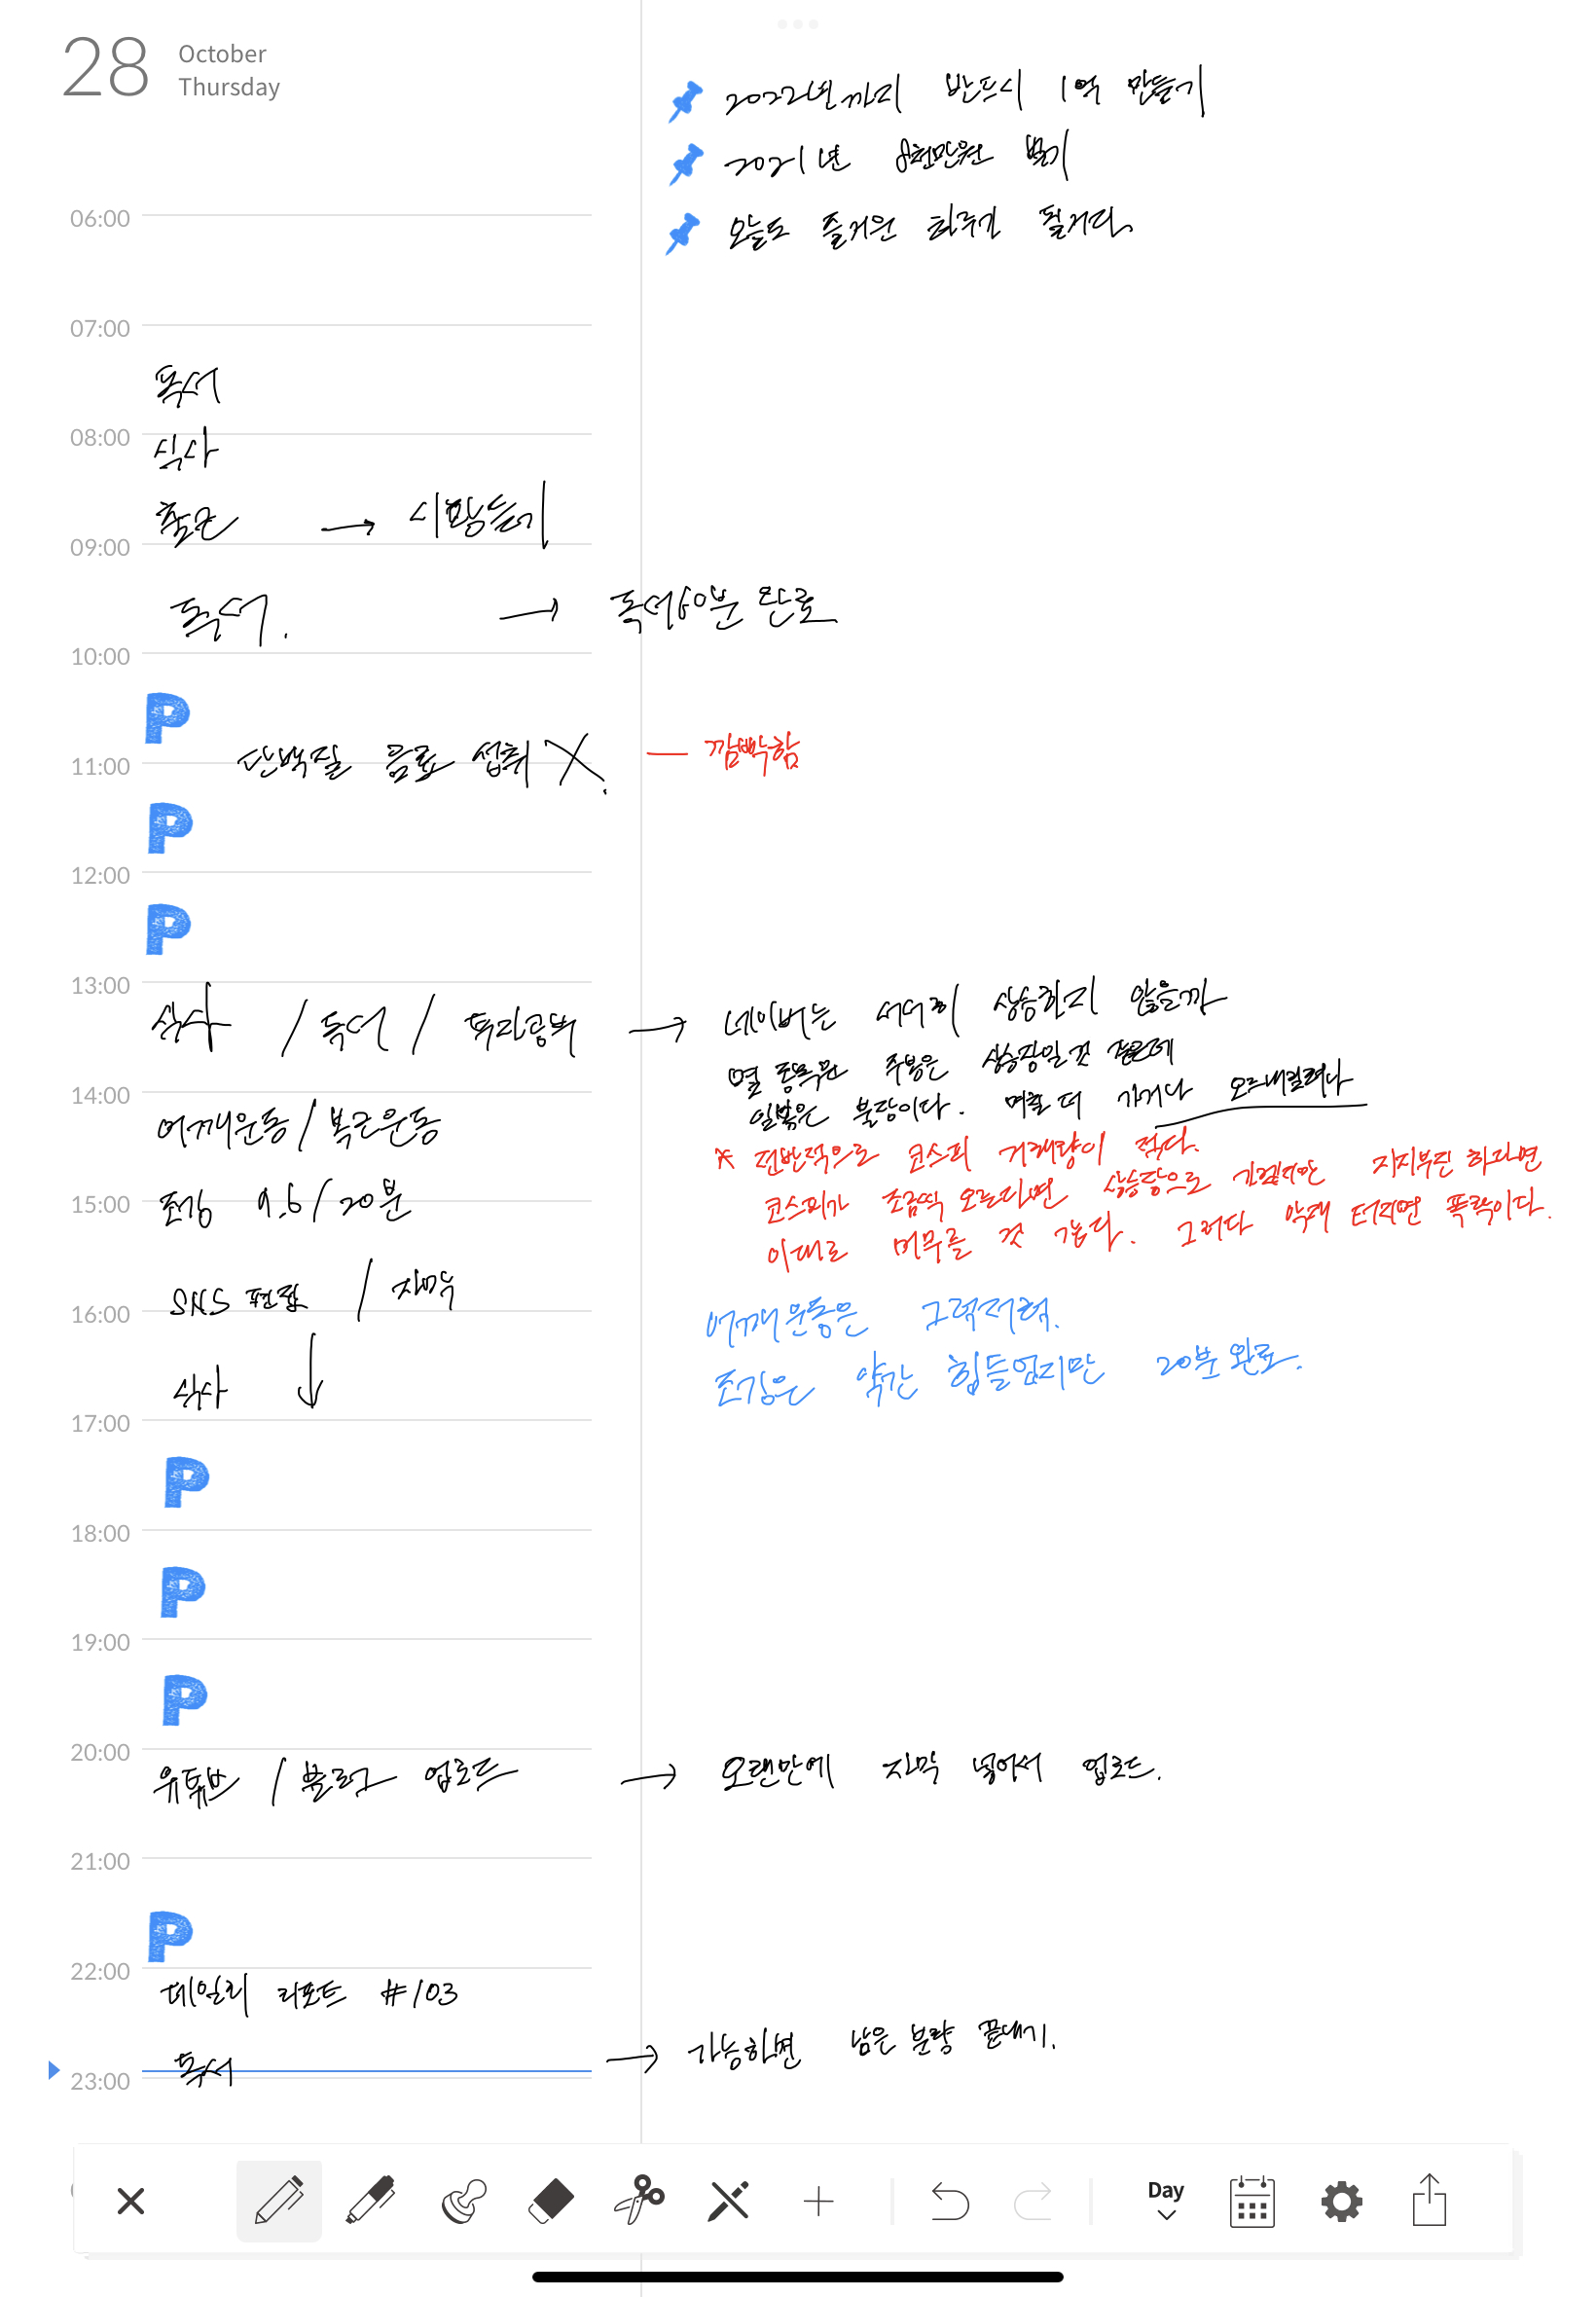 28
October
Thursday
2022년까지 반드시 1억 만들기
2021년 8천만원 벌기
오늘도 즐거운 하루가 될거다.
06:00
07:00
독서
08:00
식사
출근 → 시황듣기
09:00
독서. → 독서60분 완료
10:00
P
단백질 음료 섭취 X. — 깜빡함
11:00
P
12:00
P
13:00
식사 / 독서 / 투자공부 → 네이버는 서서히 상승하지 않을까
주봉은 상승장일것 같은데
14:00
일봉은 불장이다. 며칠 더 가거나 오르내릴려나
어깨운동 / 복근운동
* 전반적으로 코스피 거래량이 적다.
코스피가 조금씩 오른다면 상승장으로 가겠지만 지지부진 하다면
15:00
조깅 9.6 / 20분
이대로 머무를 것 같다. 그러다 악재 터지면 폭락이다.
SNS 편집 / 자막
16:00
어깨운동은 그럭저럭.
식사 ↓
조깅은 약간 힘들었지만 20분 완료.
17:00
P
18:00
P
19:00
P
20:00
유튜브 / 블로그 업로드 → 오랜만에 자막 넣어서 업로드.
21:00
P
22:00
데일리 리포트 #103
독서 → 가능하면 남은 분량 끝내기.
23:00
Day